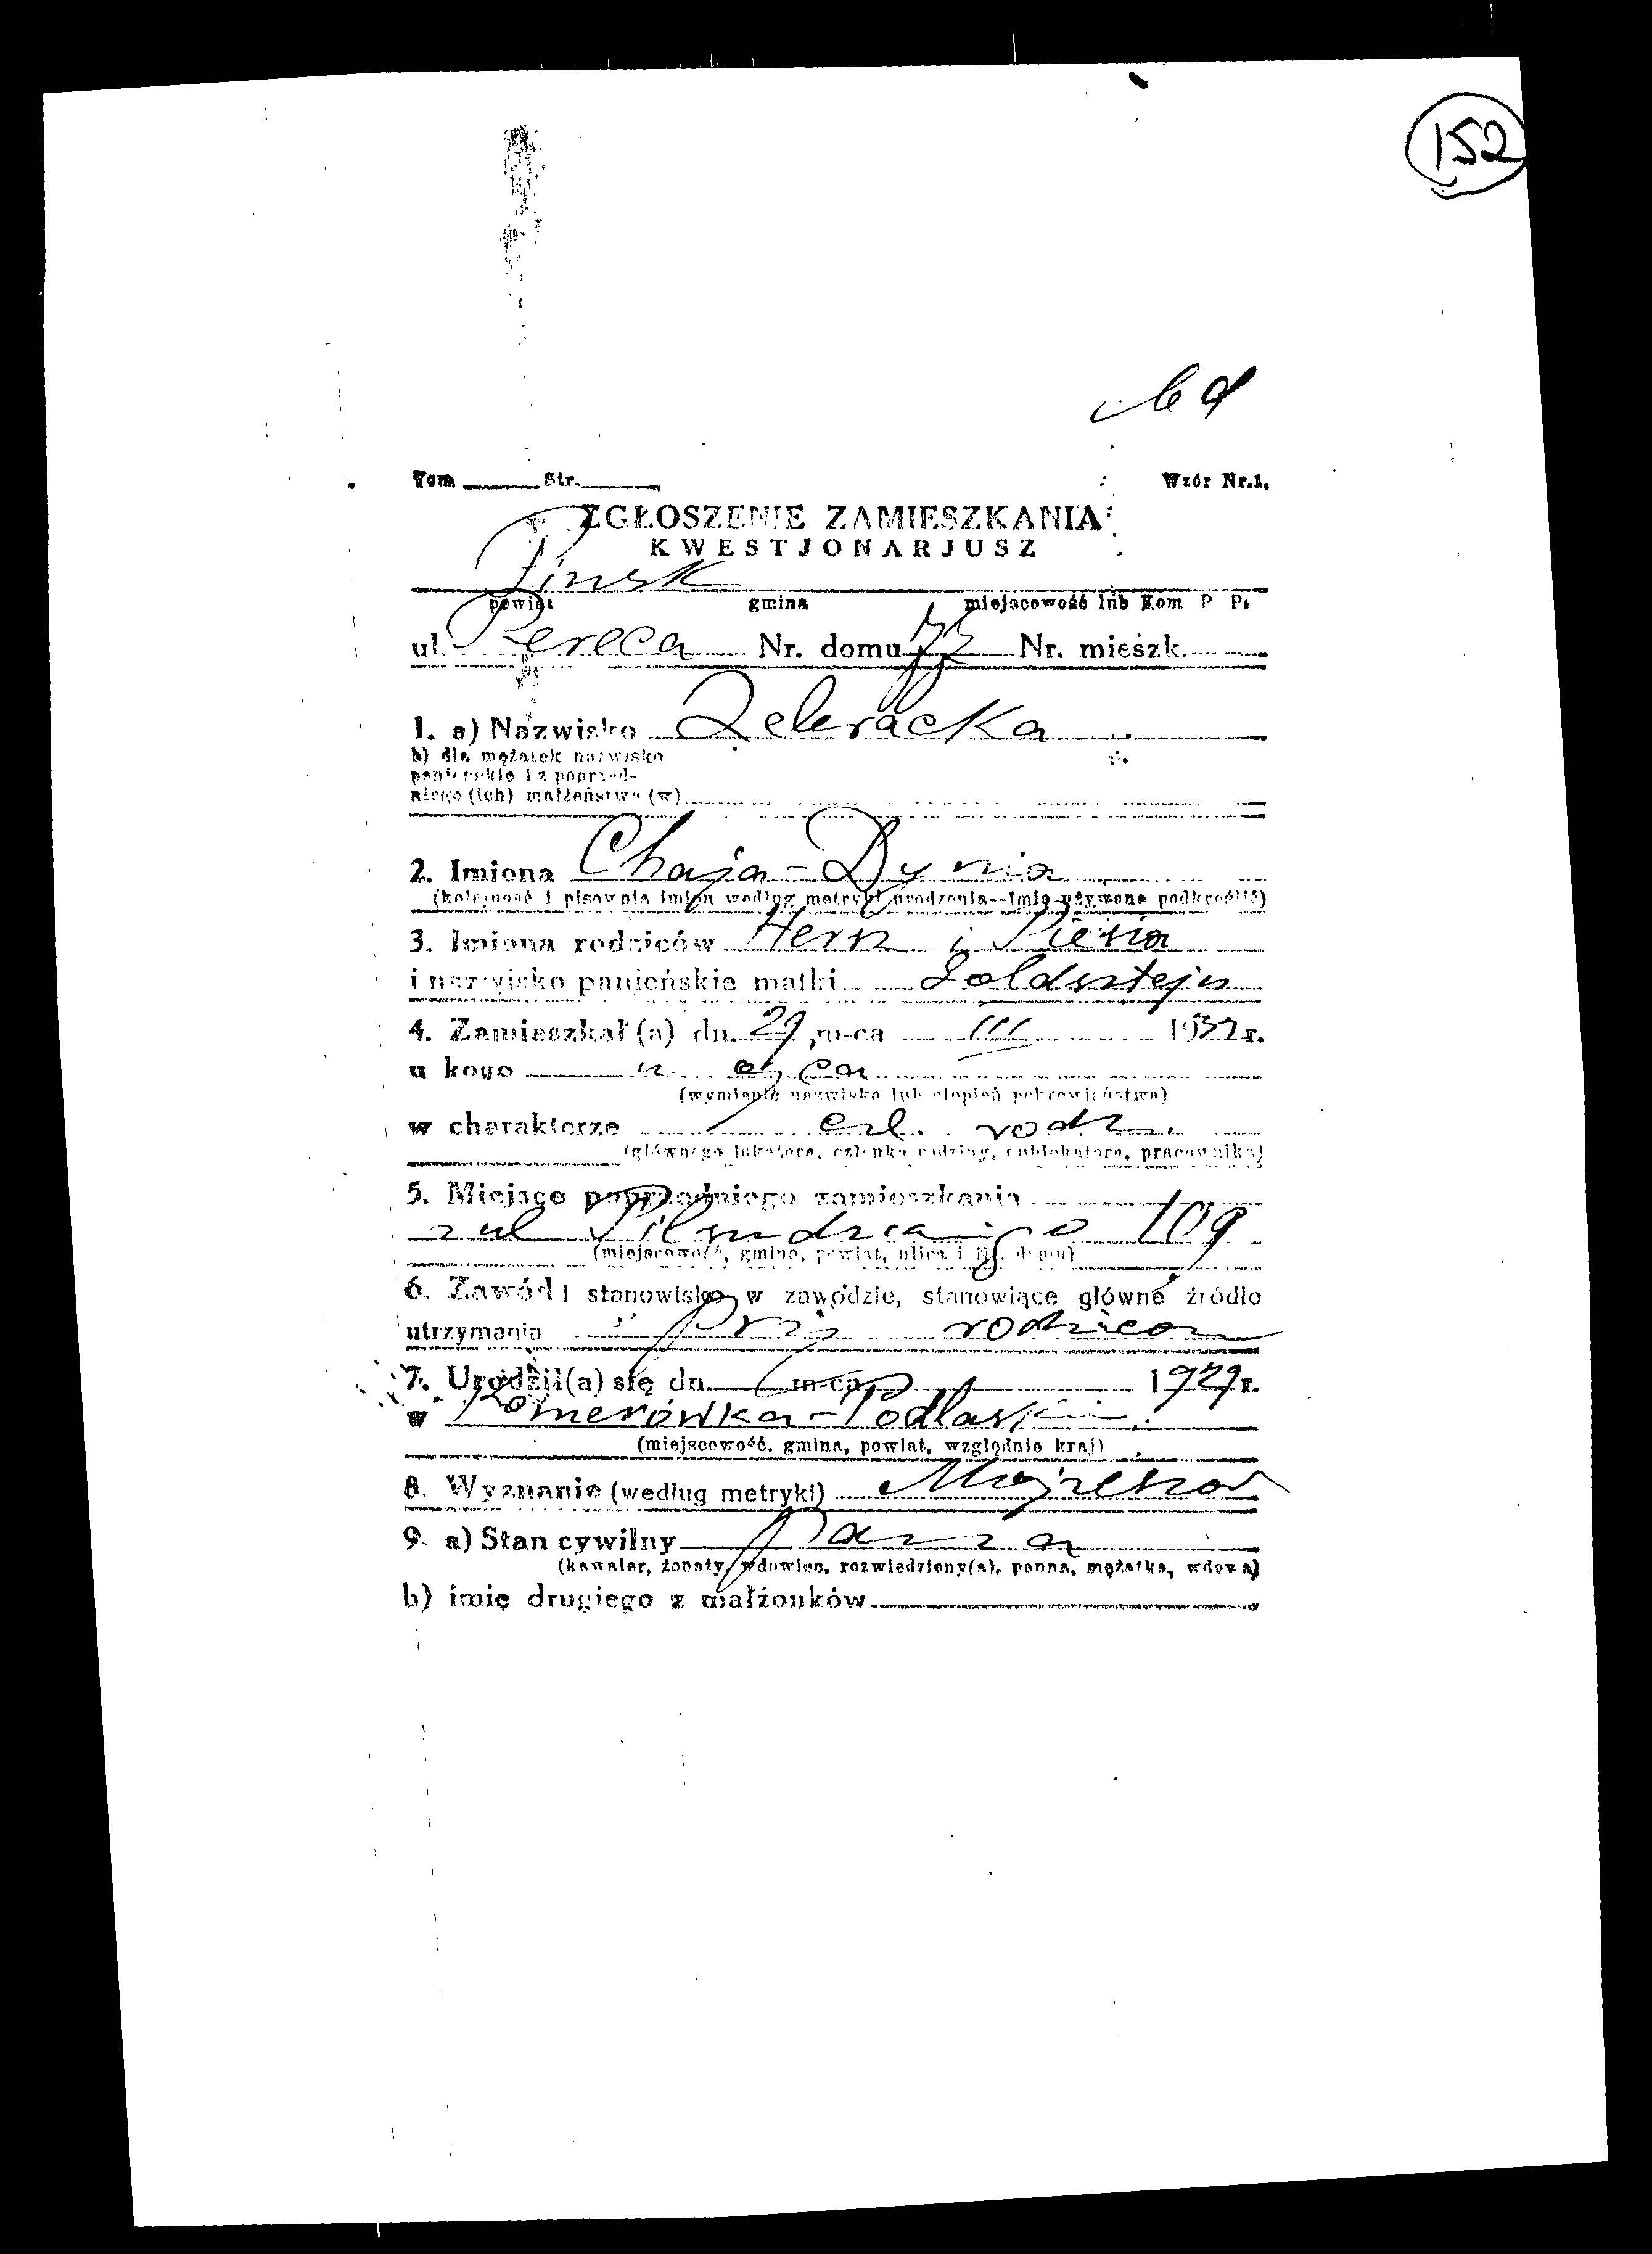 152
Tom Str. Wzór Nr.1.
ZGŁOSZENIE ZAMIESZKANIA
KWESTJONARJUSZ
Pinsk
powiat gmina miejscowość lub Kom P. P.
ul. Pereca Nr. domu Nr. mieszk.
1. a) Nazwisko
b) dla mężatek nazwisko
panieńskie i z poprzed-
niego (ich) małżeństwa (w)
2. Imiona Chaja-Dynia
(kolejność i pisownia imion według metryki urodzenia—Imię używane podkreślić)
3. Imiona rodziców Hersz i
i nazwisko panieńskie matki Goldsztejn
4. Zamieszkał(a) dn. 29 m-ca III r.
u kogo u ojca
(wymienić nazwisko lub stopień pokrewieństwa)
w charakterze czł. rodz.
(głównego lokatora, członka rodziny, sublokatora, pracownika)
5. Miejsce poprzedniego zamieszkania
z ul Piłsudskiego 109
(miejscowość, gmina, powiat, ulica i Nr. domu)
6. Zawód i stanowisko w zawodzie, stanowiące główne źródło
utrzymania przy rodzicach
7. Urodził(a) się dn. m-ca 1929 r.
w
(miejscowość, gmina, powiat, względnie kraj)
8. Wyznanie (według metryki) Mojżesz
9. a) Stan cywilny panna
(kawaler, żonaty, wdowiec, rozwiedziony(a), panna, mężatka, wdowa)
b) imię drugiego z małżonków